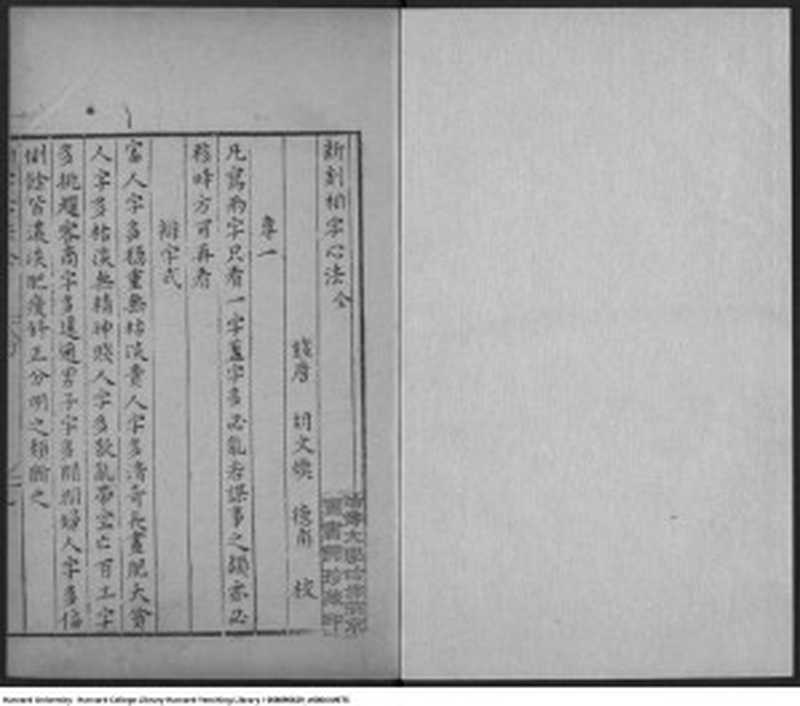 新刻相字心法 全
錢唐 胡文煥 德甫 校
專一
凡寫兩字只看一字蓋字多必亂若謀事之類亦必
移時方可再看
辨字式
富人字多穩重無枯淡貴人字多清奇長畫肥大貧
人字多枯淡無精神賤人字多散亂帶空亡百工字
多挑趯客商字多遠通男子字多開闊婦人字多偪
側餘皆濃淡肥瘦斜正分明之類斷之
哈佛大學
圖書館珍藏印
Harvard University - Harvard College Library Harvard-Yenching Library /